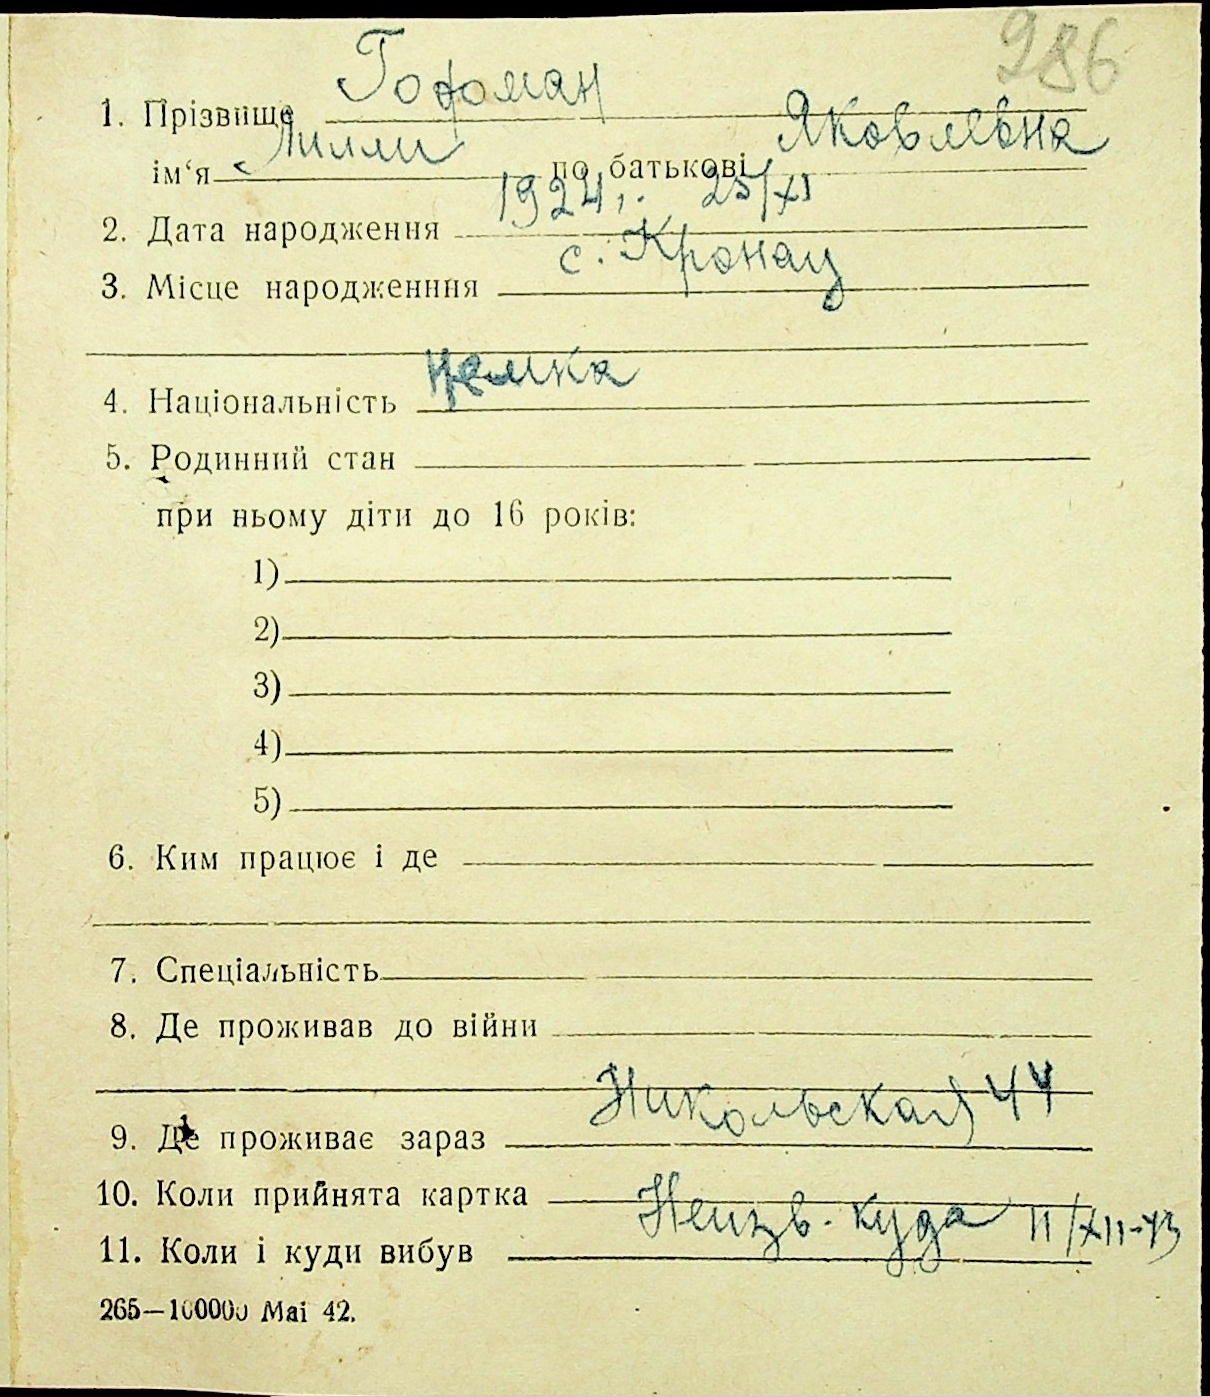 986
1. Прізвище Гофман
ім‘я Лилли по батькові Яковлевна
2. Дата народження 1924 г. 25/XI
3. Місце народженння с. Кронау
4. Національність Немка
5. Родинний стан
при ньому діти до 16 років:
1)
2)
3)
4)
5)
6. Ким працює і де
7. Спеціальність
8. Де проживав до війни
9. Де проживає зараз Никольская 44
10. Коли прийнята картка
11. Коли і куди вибув Неизв. куда 11/XII-43
265—100000 Mai 42.